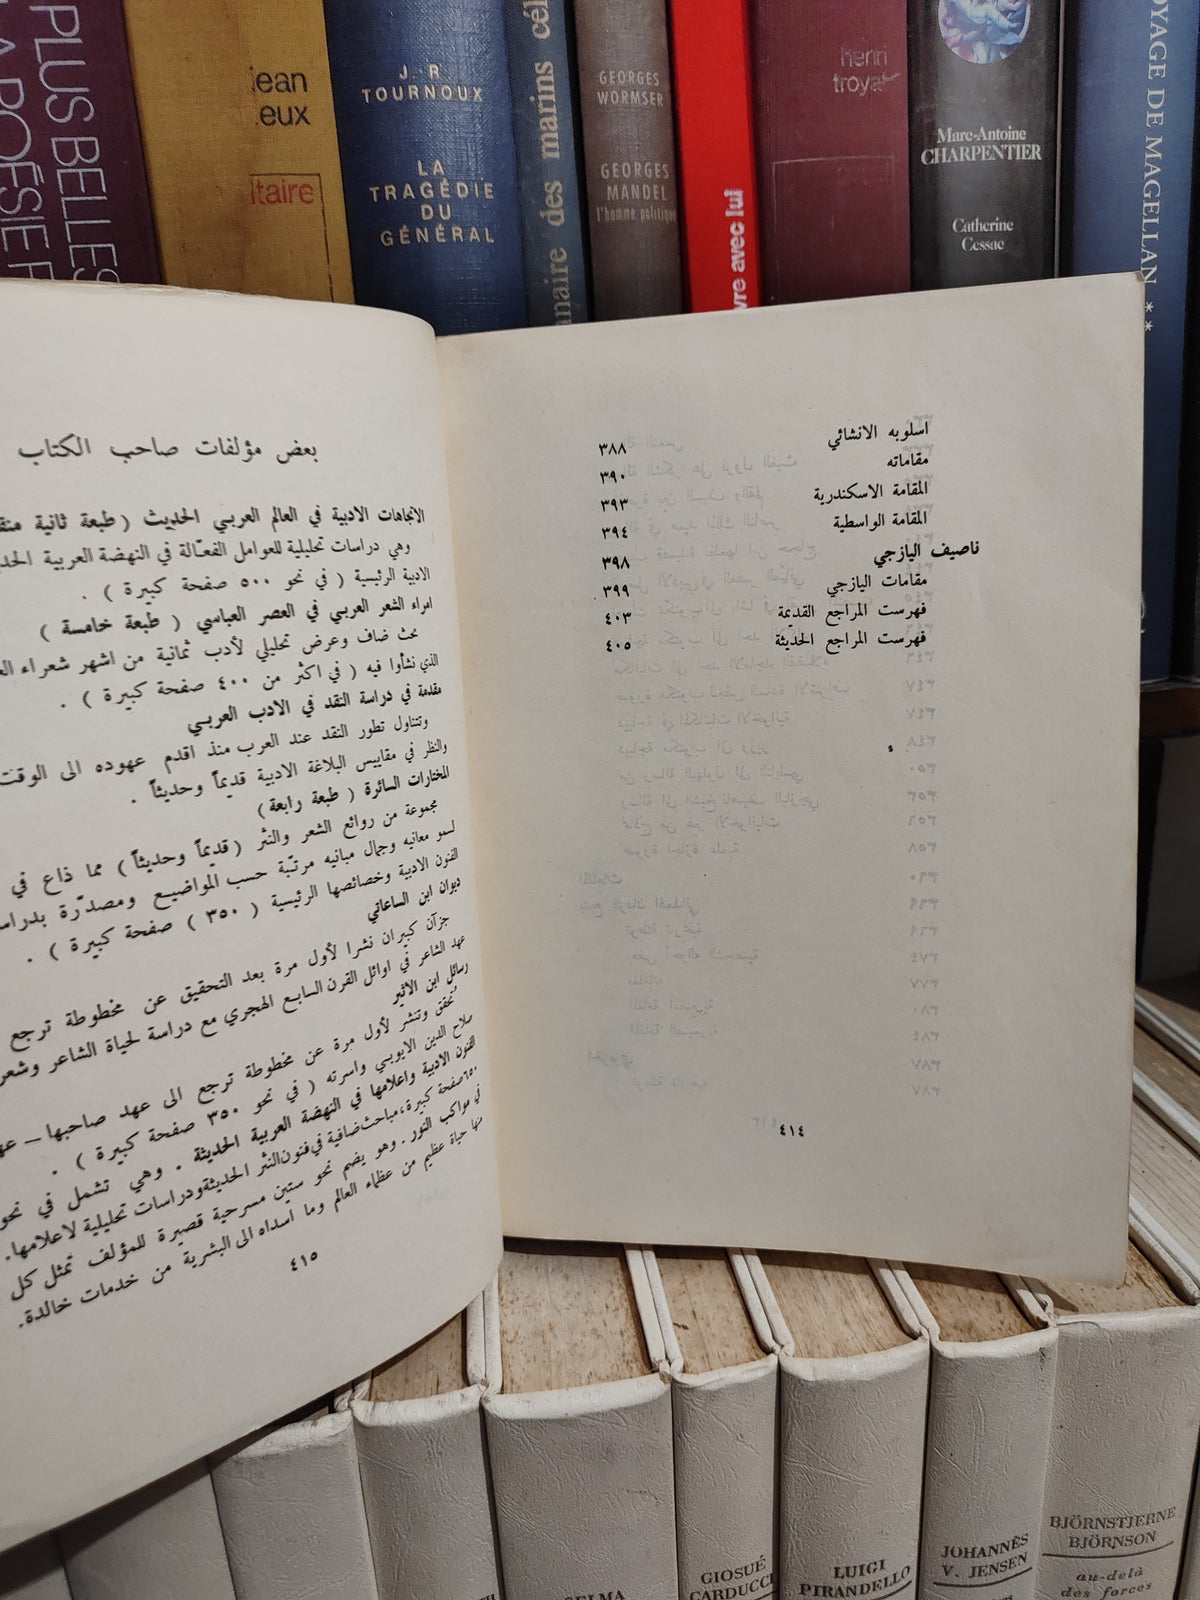 PLUS BELLES
LA POÉSIE F
jean
eux
ltaire
J.-R.
TOURNOUX
LA
TRAGÉDIE
DU
GÉNÉRAL
nnaire des marins cél
GEORGES
WORMSER
GEORGES
MANDEL
l'homme politique
vre avec lui
henri
troyat
Marc-Antoine
CHARPENTIER
Catherine
Cessac
OYAGE DE MAGELLAN **
اسلوبه الانشائي ٣٨٨
مقاماته ٣٩٠
المقامة الاسكندرية ٣٩٣
المقامة الواسطية ٣٩٤
ناصيف اليازجي ٣٩٨
مقامات اليازجي ٣٩٩
فهرست المراجع القديمة ٤٠٣
فهرست المراجع الحديثة ٤٠٥
٤١٤
بعض مؤلفات صاحب الكتاب
الاتجاهات الادبية في العالم العربي الحديث ( طبعة ثانية منق
وهي دراسات تحليلية للعوامل الفعّالة في النهضة العربية الحدي
الادبية الرئيسية ( في نحو ٥٠٠ صفحة كبيرة ) .
امراء الشعر العربي في العصر العباسي ( طبعة خامسة )
بحث ضاف وعرض تحليلي لأدب ثمانية من اشهر شعراء الع
الذي نشأوا فيه ( في اكثر من ٤٠٠ صفحة كبيرة ) .
مقدمة في دراسة النقد في الادب العربي
وتتناول تطور النقد عند العرب منذ اقدم عهوده الى الوقت
والنظر في مقاييس البلاغة الادبية قديماً وحديثاً .
المختارات السائرة ( طبعة رابعة )
مجموعة من روائع الشعر والنثر ( قديماً وحديثاً ) مما ذاع في
لسمو معانيه وجمال مبانيه مرتبّة حسب المواضيع ومصدّرة بدراس
الفنون الادبية وخصائصها الرئيسية ( ٣٥٠ ) صفحة كبيرة ) .
ديوان ابن الساعاتي
جزآن كبيران نشرا لأول مرة بعد التحقيق عن مخطوطة ترجع
عهد الشاعر في اوائل القرن السابع الهجري مع دراسة لحياة الشاعر وشعر
رسائل ابن الاثير
تُحقق وتنشر لأول مرة عن مخطوطة ترجع الى عهد صاحبها – عه
صلاح الدين الايوبي واسرته ( في نحو ٣٥٠ صفحة كبيرة ) .
الفنون الادبية واعلامها في النهضة العربية الحديثة . وهي تشمل في نحو
٦٥٠ صفحة كبيرة، مباحث ضافية في فنون النثر الحديثة ودراسات تحليلية لاعلامها.
في مواكب النور . وهو يضم نحو ستين مسرحية قصيرة للمؤلف تمثل كل
منها حياة عظيم من عظماء العالم وما اسداه الى البشرية من خدمات خالدة.
٤١٥
SELMA
GIOSUÉ
CARDUCCI
LUIGI
PIRANDELLO
JOHANNÈS
V. JENSEN
BJÖRNSTJERNE
BJÖRNSON
au-delà
des forces